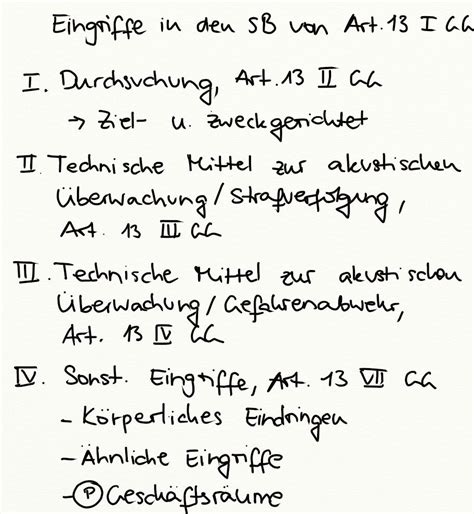 Eingriffe in den SB von Art. 13 I GG
I. Durchsuchung, Art. 13 II GG
→ Ziel- u. zweckgerichtet
II. Technische Mittel zur akustischen
Überwachung/Strafverfolgung,
Art. 13 III GG
III. Technische Mittel zur akustischen
Überwachung/Gefahrenabwehr,
Art. 13 IV GG
IV. Sonst. Eingriffe, Art. 13 VII GG
- Körperliches Eindringen
- Ähnliche Eingriffe
- Ⓟ Geschäftsräume